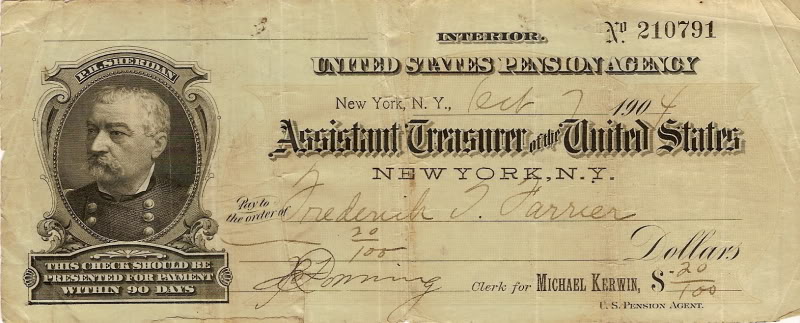 INTERIOR.
No 210791
UNITED STATES PENSION AGENCY
New York, N. Y., Oct 7 1904
Assistant Treasurer of the United States
NEW YORK, N.Y.
Pay to
the order of Frederick T. Farrier
20/100 Dollars
Clerk for MICHAEL KERWIN, $ 20/100
U. S. PENSION AGENT.
P. H. SHERIDAN
THIS CHECK SHOULD BE
PRESENTED FOR PAYMENT
WITHIN 90 DAYS